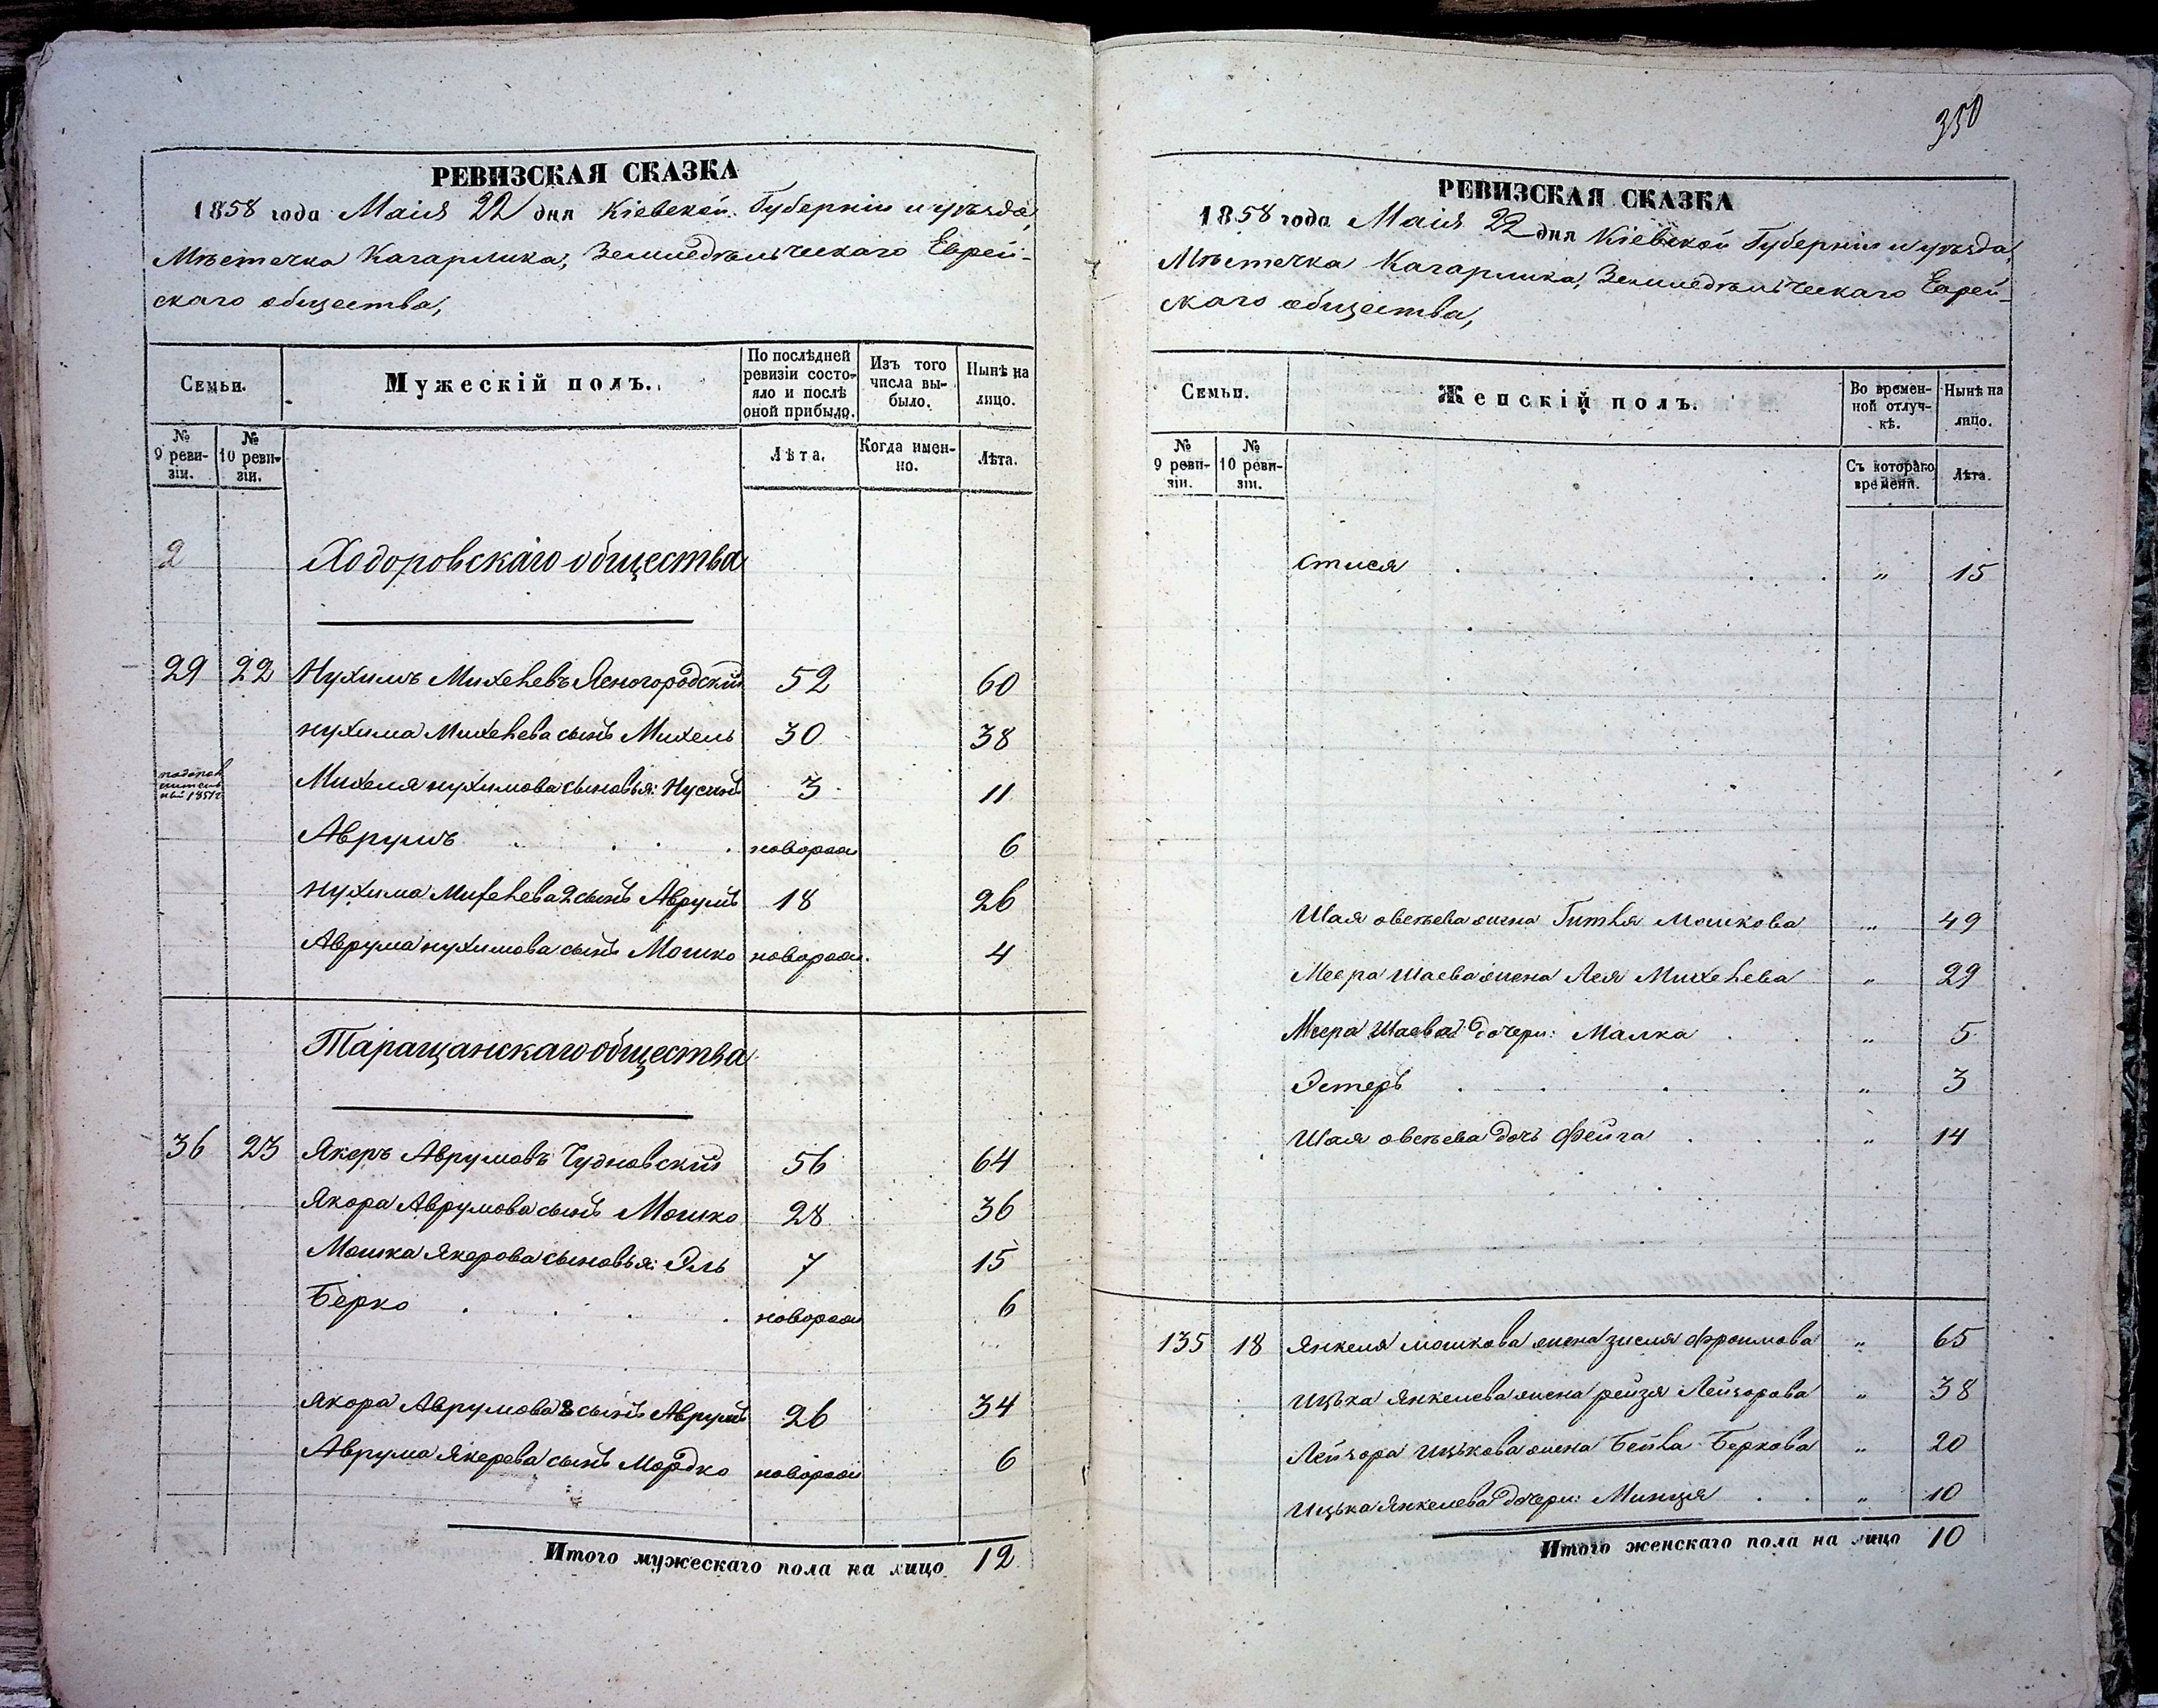 РЕВИЗСКАЯ СКАЗКА
1858 года Маія 22 дня Кіевской Губерніи и уѣзда,
Мѣстечка Кагарлика, Земледѣльческаго Еврей-
скаго общества,
Семьи. Мужескій полъ. По послѣдней ревизіи состояло и послѣ оной прибыло. Изъ того числа выбыло. Нынѣ на лицо.
№ 9 ревизіи. № 10 ревизіи. Лѣта. Когда именно. Лѣта.
2 Ходоровскаго общества
29 22 Нухимъ Михелевъ Ясногородскій 52 60
нухима Михелева сынъ Михель 30 38
Михеля нухимова сыновья: Нусинъ 3 11
1851
Аврумъ новорож 6
нухима Михелева 2 сынъ Аврумъ 18 26
Аврума нухимова сынъ Мошко новорож. 4
Таращанскаго общества
36 23 Якеръ Аврумовъ Чудновскій 56 64
Якора Аврумова сынъ Мошко 28 36
Мошка Якерова сыновья: Эль 7 15
Берко новорож 6
Якора Аврумова 2 сынъ Аврумъ 26 34
Аврума Якерева сынъ Мордко новорож 6
Итого мужескаго пола на лицо 12
350
РЕВИЗСКАЯ СКАЗКА
1858 года Маія 22 дня Кіевской Губерніи и уѣзда,
Мѣстечка Кагарлика, Земледѣльческаго Еврей-
скаго общества,
Семьи. Женскій полъ. Во временной отлучкѣ. Нынѣ на лицо.
№ 9 ревизіи. № 10 ревизіи. Съ котораго времени. Лѣта.
стися „ 15
Шая овсѣева жена Гитля Мошкова „ 49
Меера Шаева жена Лея Михелева „ 29
Меера Шаева дочери: Малка „ 5
Эстеръ „ 3
Шая овсѣева дочь Фейга „ 14
135 18 Янкеля мошкова жена зисля Фроимова „ 65
Ицька Янкелева жена рейзя Лейзорова „ 38
Лейзора Ицькова жена Бейла Беркова „ 20
Ицька Янкелева дочери: Минця „ 10
Итого женскаго пола на лицо 10